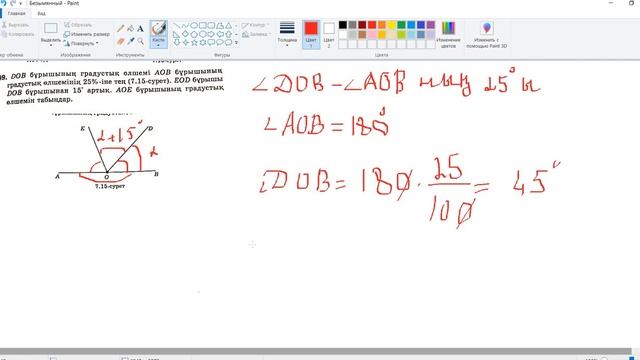 Безымянный - Paint
Файл
Главная
Вид
Вырезать
Копировать
Обрезать
Изменить размер
Повернуть
Кисти
Контур
Заливка
Толщина
Цвет 1
Цвет 2
Изменение цветов
Изменить с помощью Paint 3D
Буфер обмена
Изображение
Инструменты
Фигуры
Цвета
DOB бұрышының градустық өлшемі AOB бұрышының
градустық өлшемінің 25%-іне тең (7.15-сурет). EOD бұрышы
DOB бұрышынан 15° артық. AOE бұрышының градустық
өлшемін табыңдар.
E
D
2+15°
2
A
O
B
7.15-сурет
∠DOB - ∠AOB ның 25°ы
∠AOB = 180°
∠DOB = 180 · 25/100 = 45°